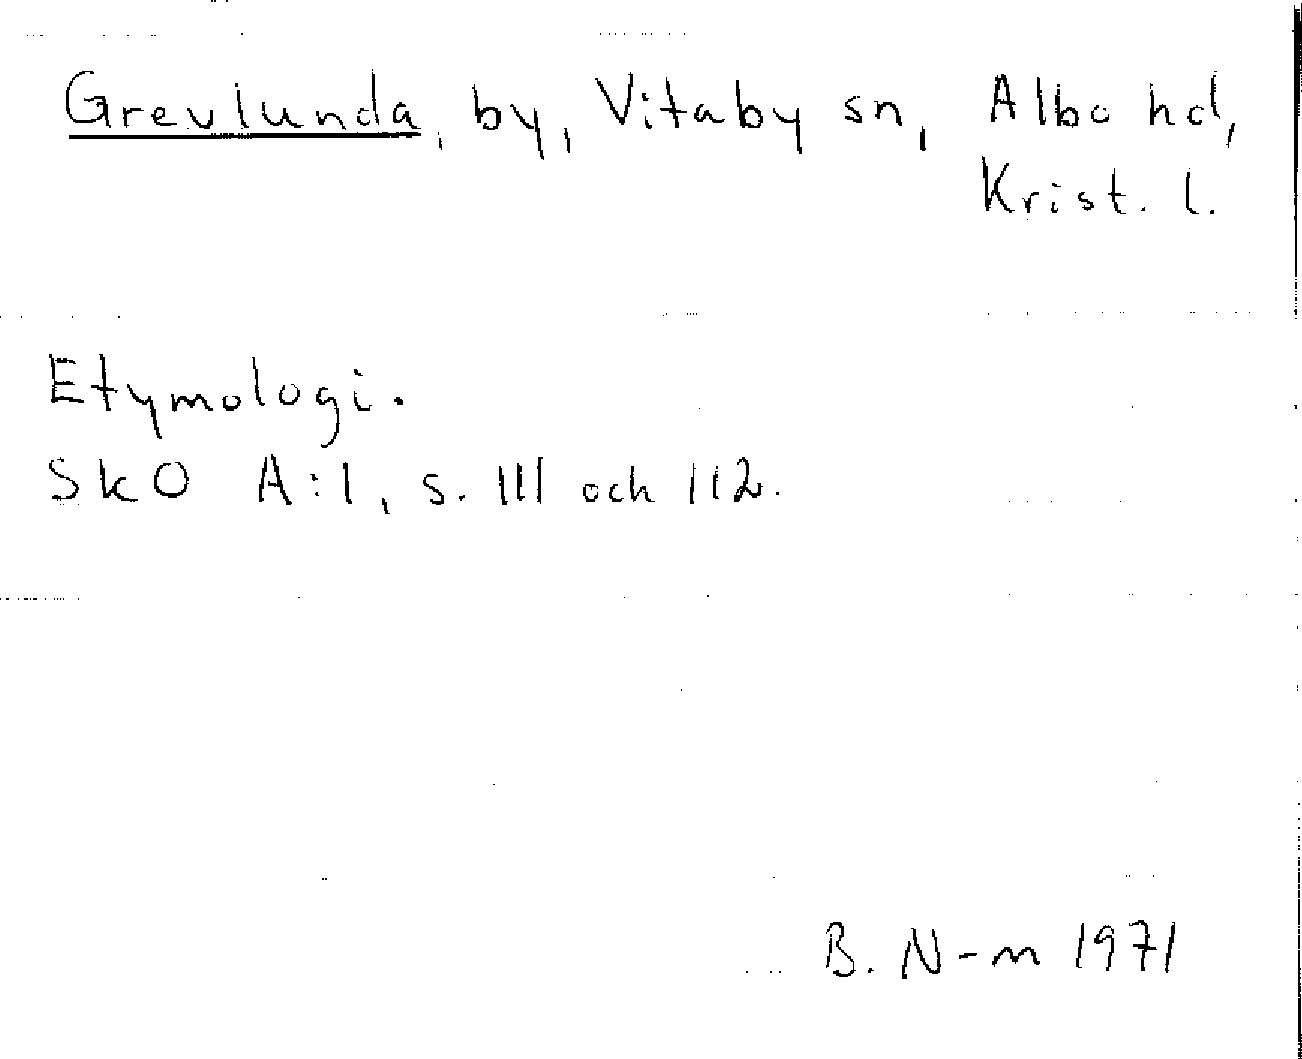 Grevlunda, by, Vitaby sn, Albo hd,
Krist. l.
Etymologi.
SkO A:1, s. 111 och 112.
B. N-m 1971